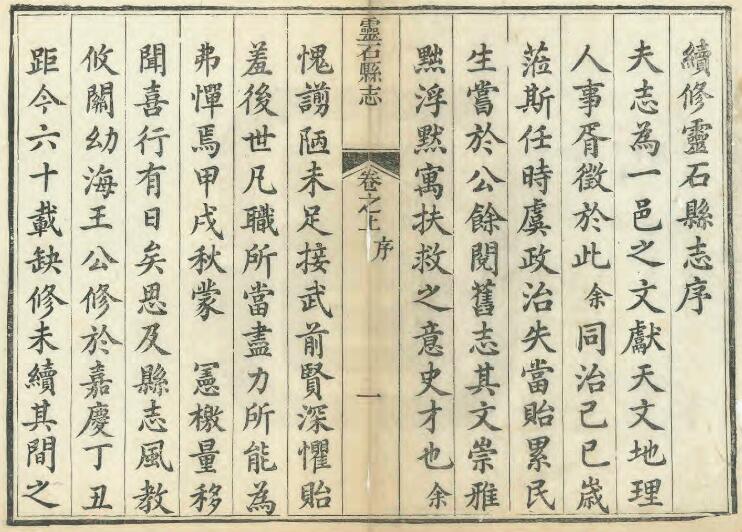 續修靈石縣志序
夫志為一邑之文獻天文地理
人事胥徵於此余同治己巳歲
蒞斯任時虞政治失當貽累民
生嘗於公餘閱舊志其文崇雅
黜浮默寓扶救之意史才也余
靈石縣志
卷之上
序
一
愧謭陋未足接武前賢深懼貽
羞後世凡職所當盡力所能為
弗憚焉甲戌秋蒙 憲檄量移
聞喜行有日矣思及縣志風教
攸關幼海王公修於嘉慶丁丑
距今六十載缺修未續其間之